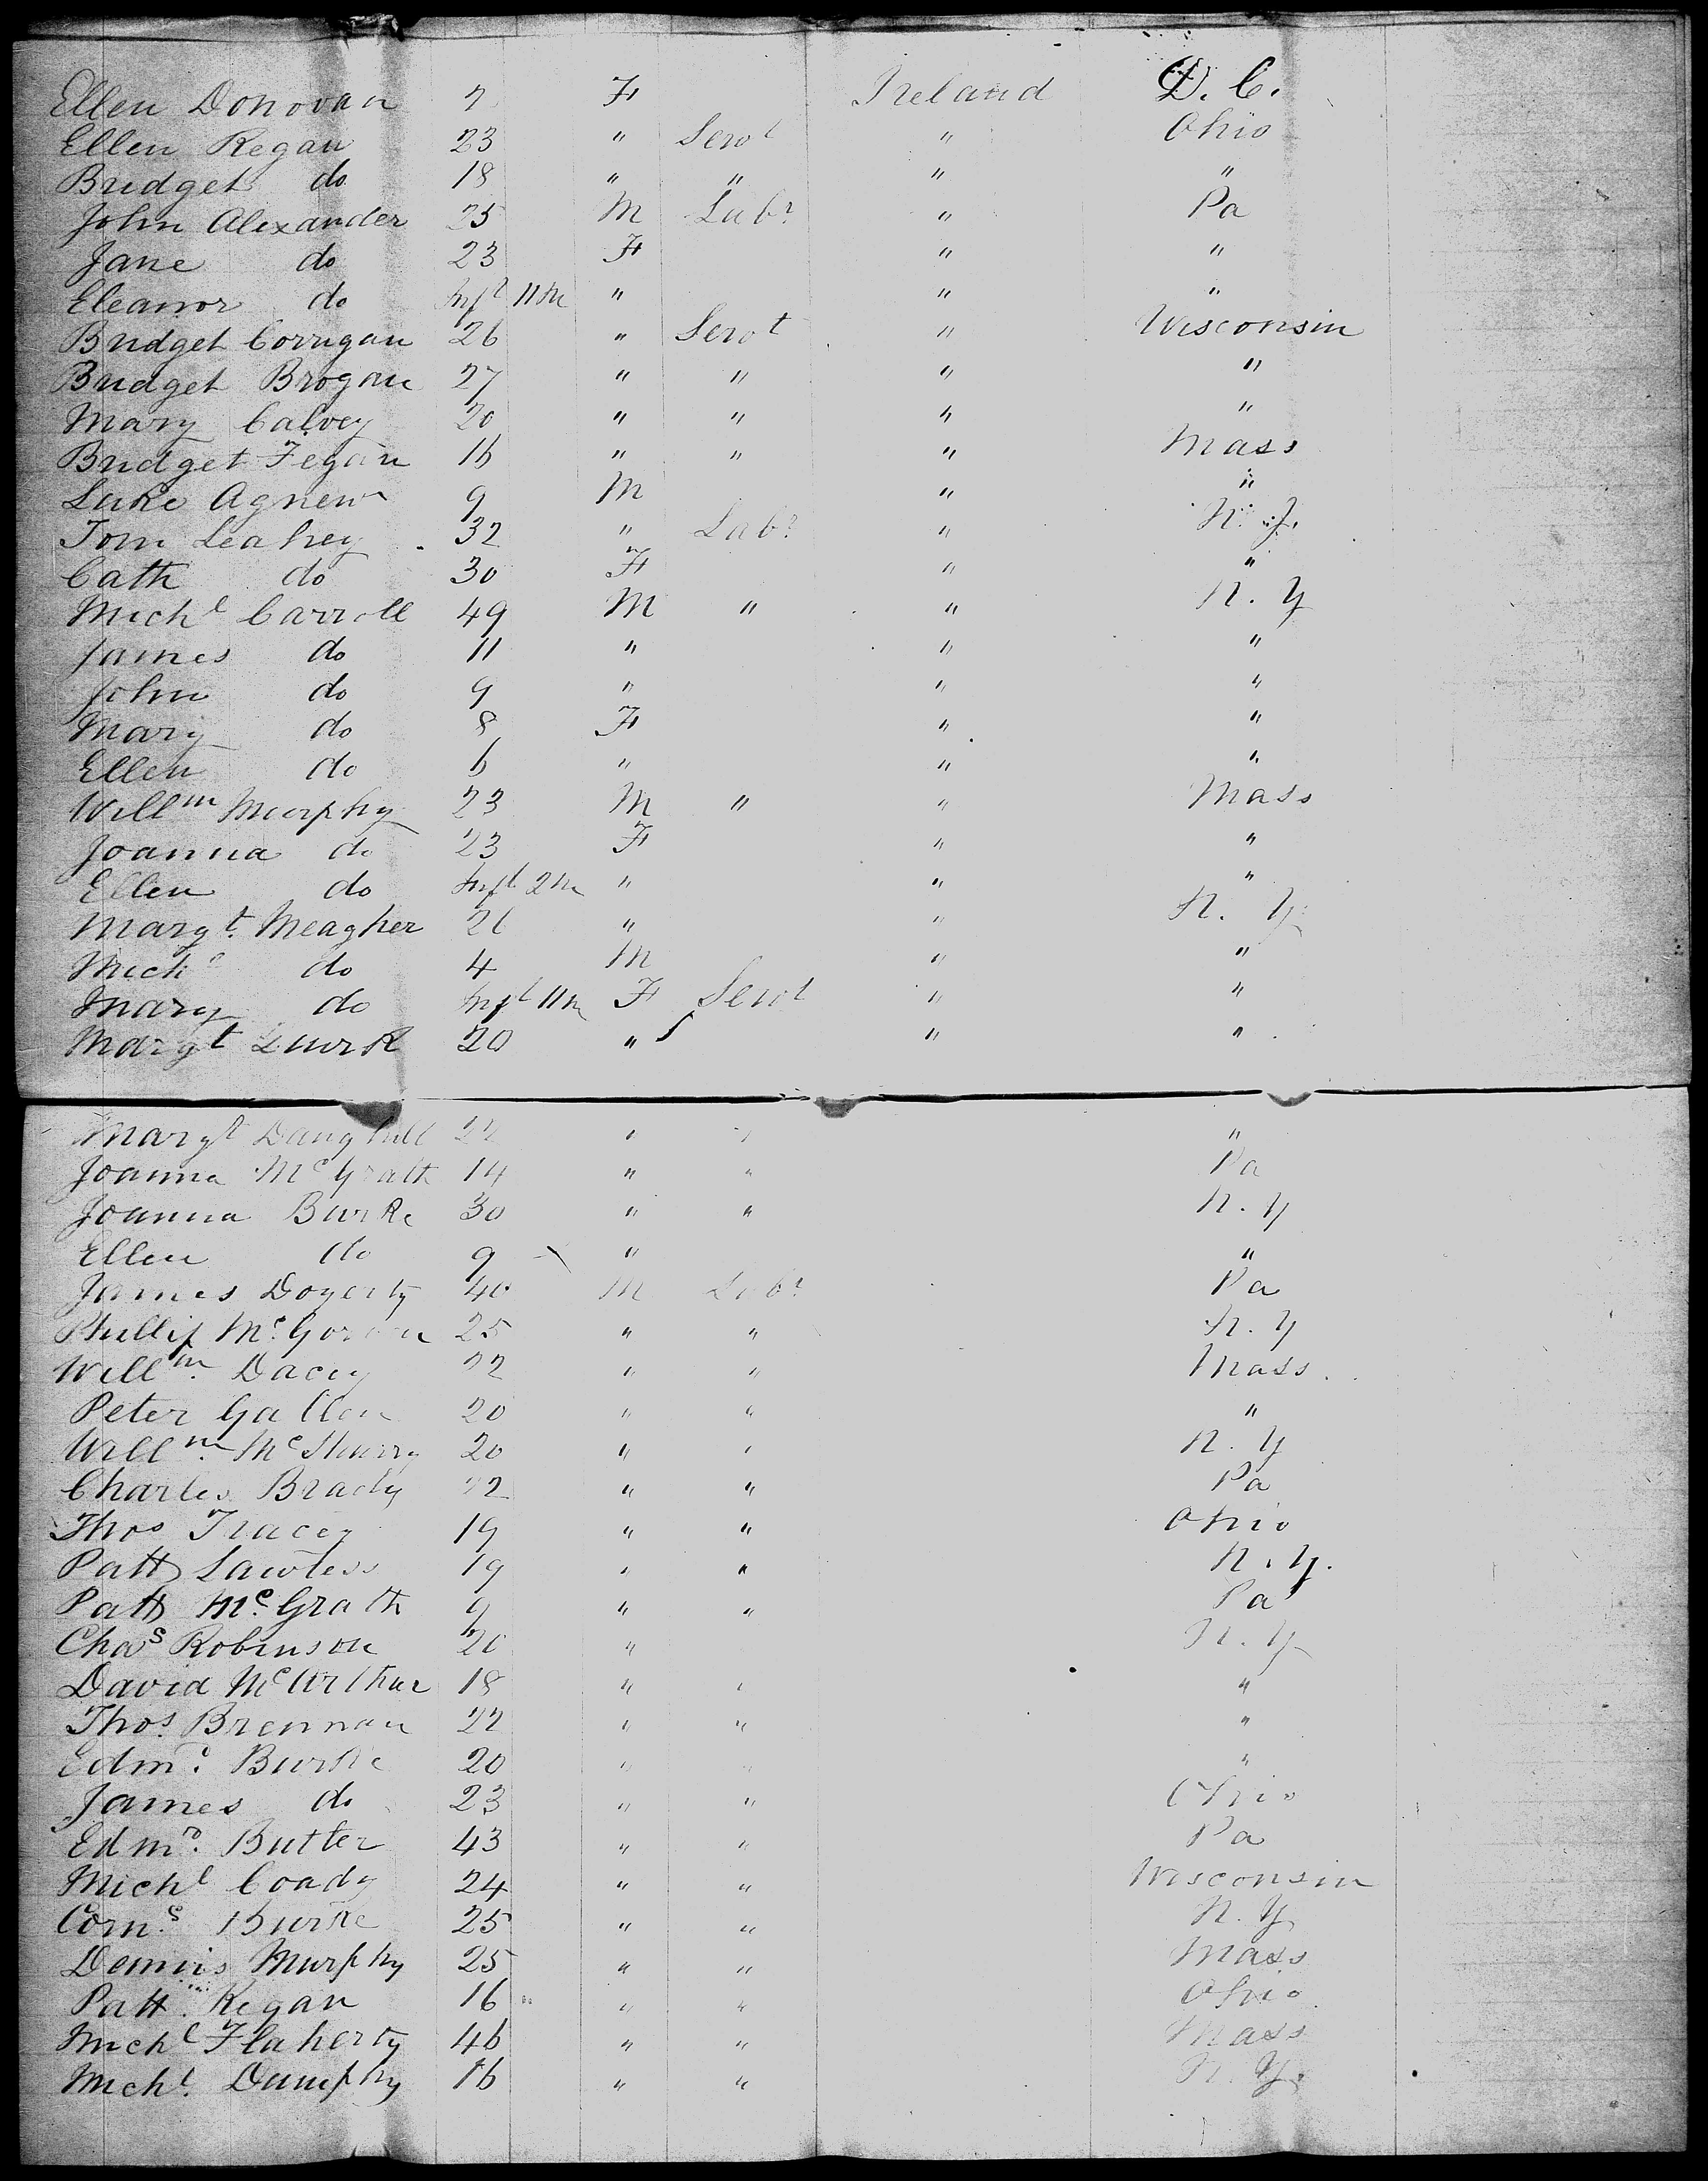 Ellen Donovan 7 F Ireland D. C.
Ellen Regan 23 " Servt " Ohio
Bridget do 18 " " " "
John Alexander 25 M Labr " Pa
Jane do 23 F " "
Eleanor do Inft 11 m " " "
Bridget Corrigan 26 " Servt " Wisconsin
Bridget Brogan 27 " " " "
Mary Calvey 20 " " " "
Bridget Fegan 16 " " " Mass
Luke Agnew 9 M " "
Tom Leahey 32 " Labr " N. J.
Cath do 30 F " "
Michl Carroll 49 M " " N. Y
James do 11 " " "
John do 9 " " "
Mary do 8 F " "
Ellen do 6 " " "
Willm Murphy 23 M " " Mass
Joanna do 23 F " "
Ellen do Inft 2 m " " "
Margt. Meagher 26 " " N. Y.
Michl do 4 M " "
Mary do Inft 11 m F Servt " "
Margt 20 " " "
Margt 22 " " "
Joanna McGrath 14 " " Pa
Joanna Burke 30 " " N. Y
Ellen do 9 " "
James Dogerty 40 M Labr Pa
Phillip Mc 25 " " N. Y
Willm. Dacey 22 " " Mass.
Peter 20 " " "
Willm. 20 " " N. Y
Charles Brady 22 " " Pa
Thos Tracey 19 " " Ohio
Patt Lawless 19 " " N. Y.
Patt McGrath 9 " " Pa
Chas Robinson 20 " N. Y
David McArthur 18 " " "
Thos. Brennan 22 " " "
Edmd. Burke 20 " " "
James do 23 " " Ohio
Edmd. Butler 43 " " Pa
Michl Coady 24 " " Wisconsin
Corns. Burke 25 " " N. Y
Dennis Murphy 25 " " Mass
Patt. Regan 16 " " Ohio
Michl Flaherty 46 " " Mass
Michl. Dumphy 16 " " N. Y.